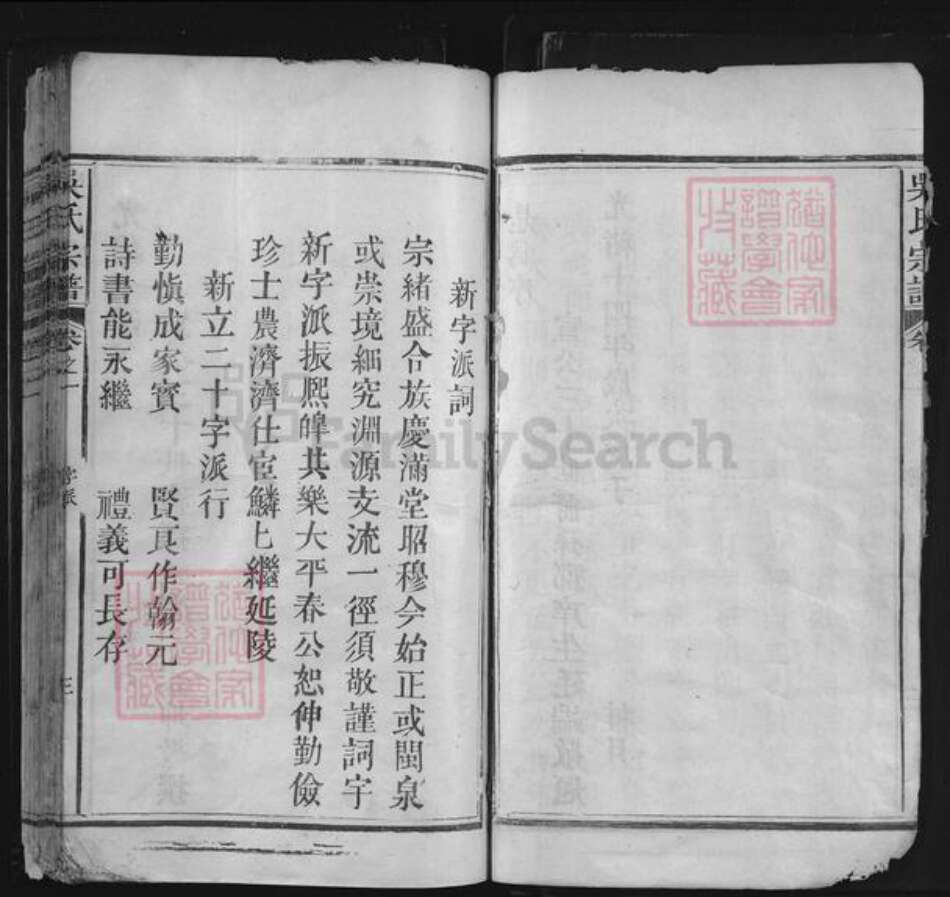 吳氏宗譜 卷
新字派詞
宗緒盛合族慶滿堂昭穆今始正或閩泉
或崇境細究淵源支流一徑須敬謹詞字
新字派振熙皥共樂大平春公恕伸勤儉
珍士農濟濟仕宦鱗匕繼延陵
新立二十字派行
勤慎成家寶 賢真作翰元
詩書能永繼 禮義可長存
吳氏宗譜 卷之一 字派 三
FamilySearch
譜學會
收藏
譜學會
收藏